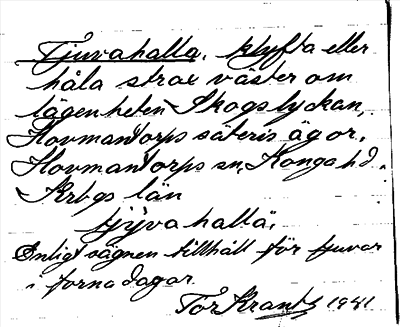 Tjuvahalla, klyfta eller
håla strax väster om
lägenheten Skogslyckan,
Hovmantorps säteris ägor,
Hovmantorps sn, Konga hd.
Krbgs län
tjyvahallä,
Enligt sägnen tillhåll för tjuvar
i forna dagar
Tor Krantz 1941